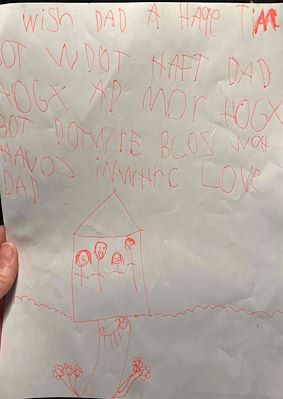 I WISH DAD A HAPE TIM
BOT WDOT HAFT DAD
HOGX AD MOR HOGX
BOT DOTWRE BCOS YOR
INWHRC LOVE
DAD